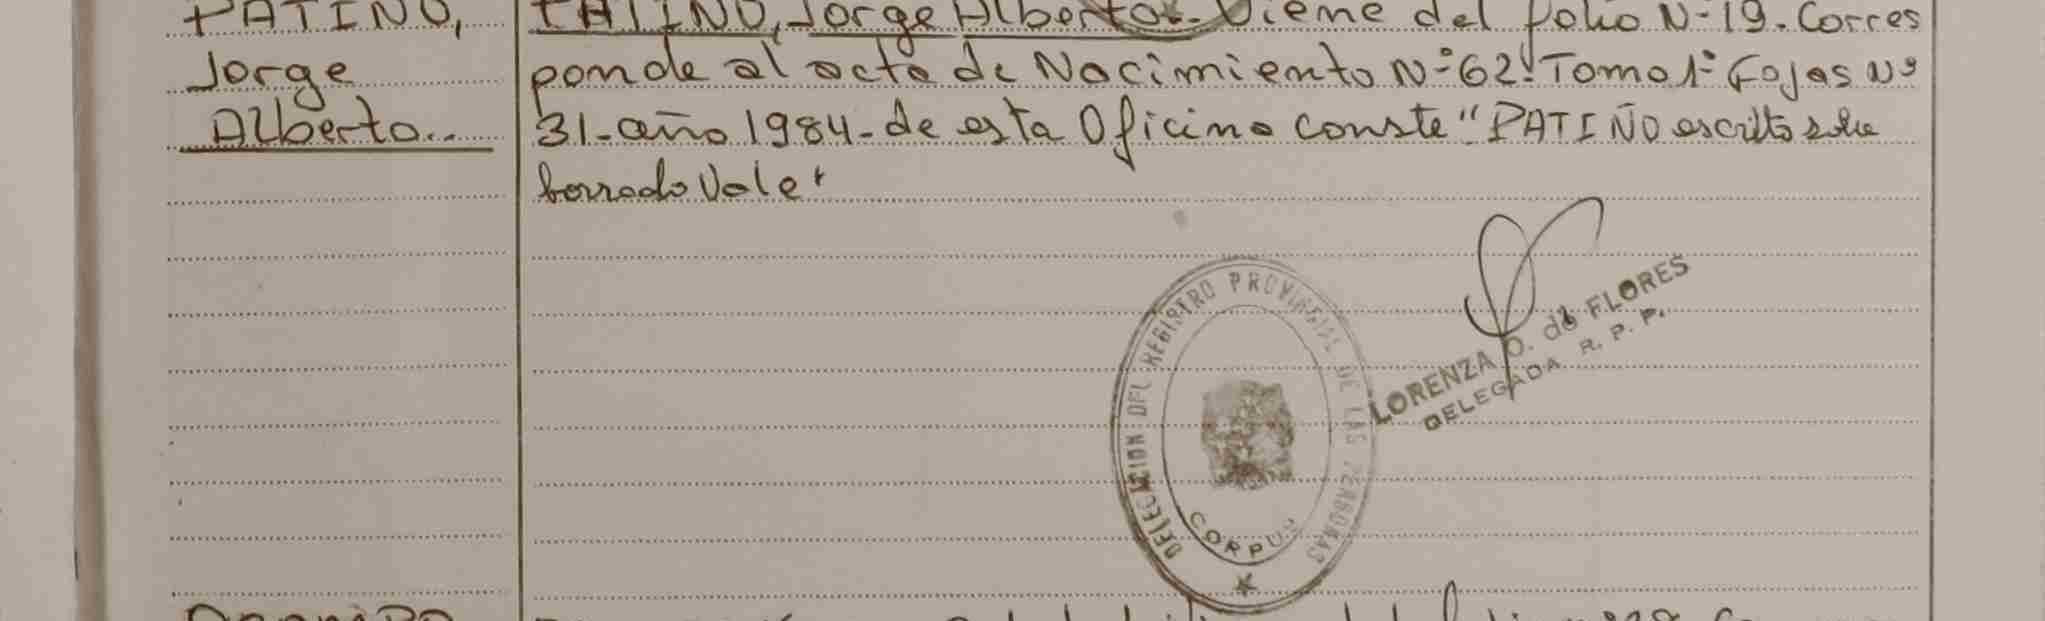 PATIÑO,
Jorge
Alberto..
PATIÑO, Jorge Alberto.- Viene del folio Nº 19. Corres
ponde al acta de Nacimiento Nº 62. Tomo 1º Fojas Nº
31-año 1984-de esta Oficina conste "PATIÑO escrito sobre
borrado Vale"
DELEGACION DEL REGISTRO PROVINCIAL DE LAS PERSONAS
CORPUS
LORENZA O. de FLORES
DELEGADA R. P. P.